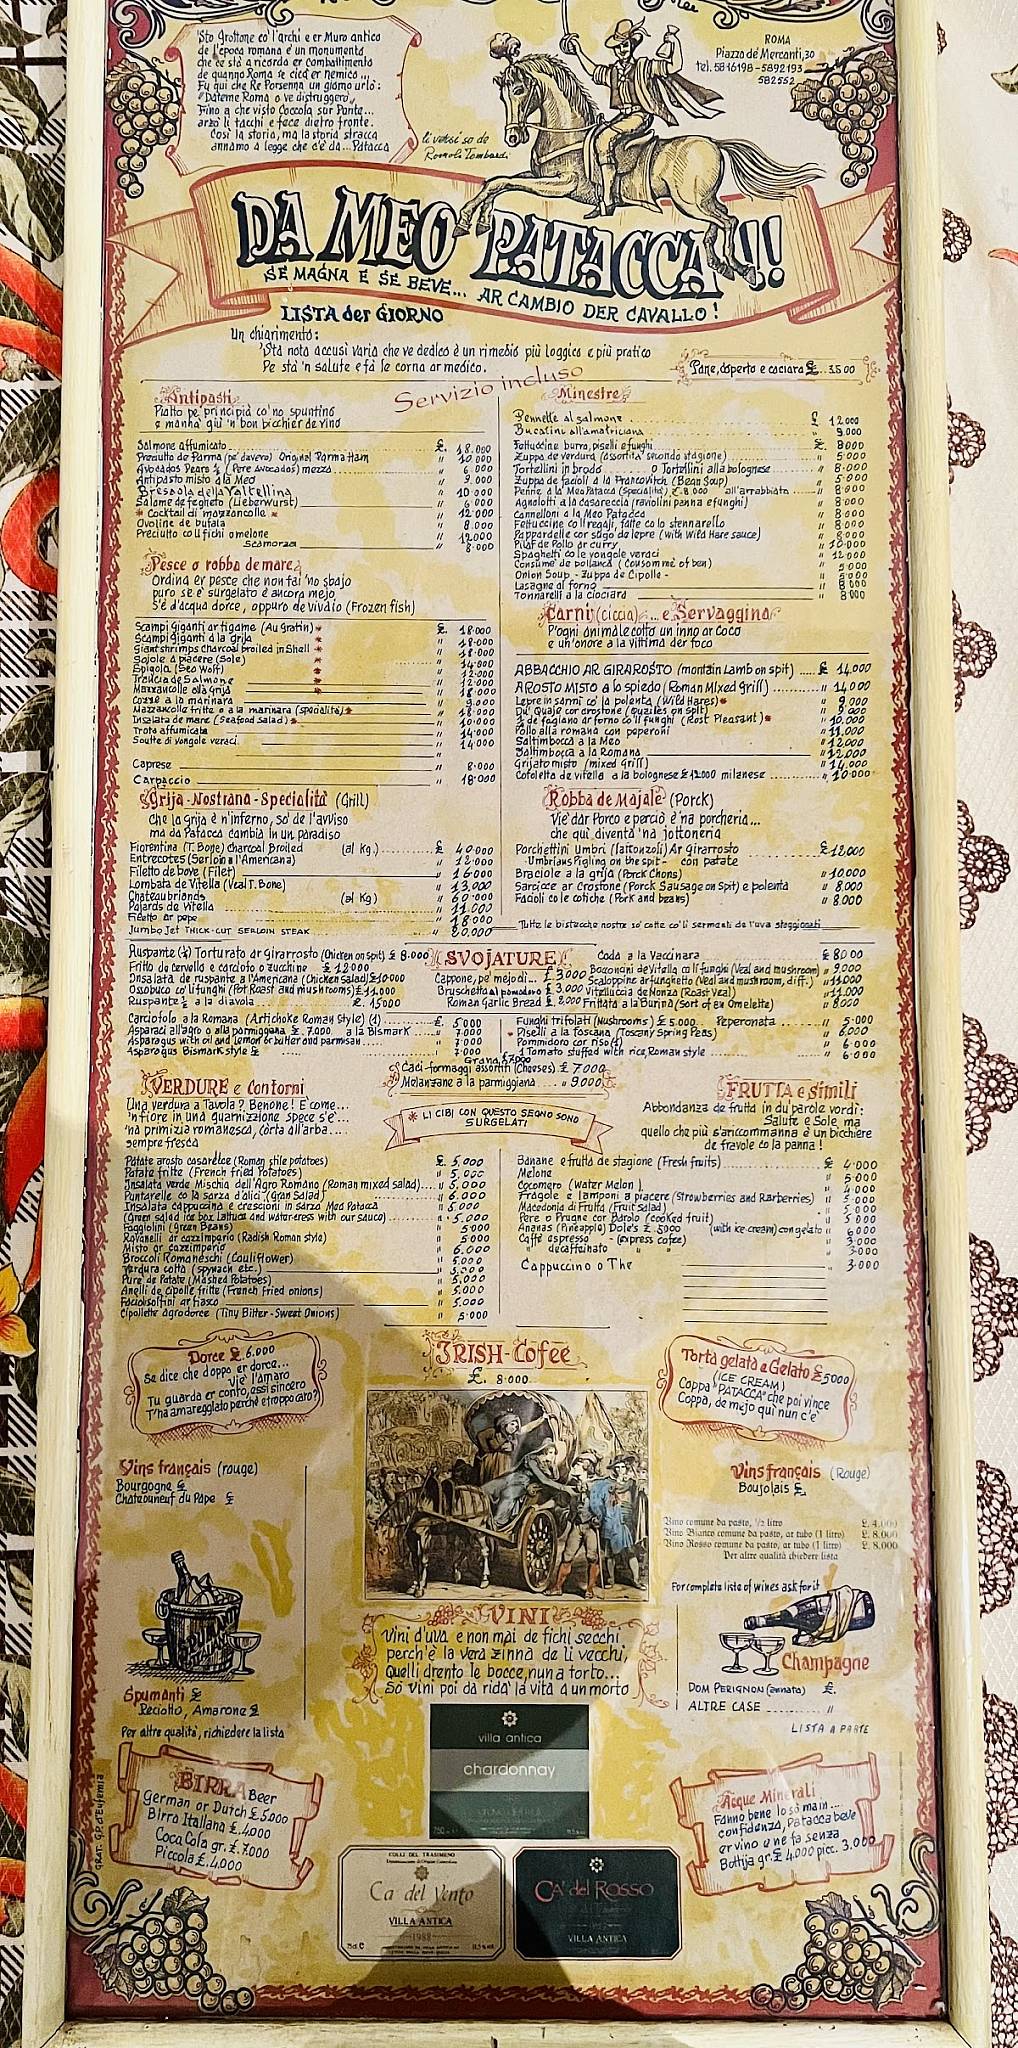 'Sto Grottone co' l'archi e er Muro antico
de l'epoca romana è un monumento
che ce stà a ricordà er combattimento
de quanno Roma
Fu qui che Re Porsenna un giorno urlò:
"Dateme Roma o ve distruggerò„
Fino a che visto Coccola sur Ponte...
arzò li tacchi e fece dietro fronte.
Così la storia, ma la storia stracca
annamo a legge che c'è da...Patacca
li versi so de
Romolo Lombardi
ROMA
Piazza de' Mercanti,30
tel. 5816198-5892193
582552
DA MEO PATACCA!!
SE MAGNA E SE BEVE... AR CAMBIO DER CAVALLO!
LISTA der GIORNO
Un chiarimento:
'Sta nota accusì varia che ve dedico è un rimedio più loggico e più pratico
Pe stà 'n salute e fà le corna ar medico.
Servizio incluso
Pane, coperto e caciara £. 3500
Antipasti
Piatto pe' principià co' no spuntino
e mannà giù 'n bon bicchier de vino
Salmone affumicato £. 18.000
Presutto de Parma (pe' davero) Original Parma Ham " 10.000
Avocados Pears ½ (Pere avocados) mezza " 6.000
Antipasto misto a la Meo " 9.000
Bresaola della Valtellina " 10.000
Salame de fegheto (Lieberwurst) " 6.000
* Cocktail di mazzancolle * " 12.000
Ovoline de bufala " 8.000
Preciutto co li fichi o melone " 12.000
Scamorza " 8.000
Pesce o robba de mare
Ordina er pesce che non fai 'no sbajo
puro se è surgelato è ancora mejo
S'è d'acqua dorce, oppuro de vivaio (Frozen fish)
Scampi Giganti ar tigame (Au Gratin) * £. 18.000
Scampi Giganti a la grija * " 18.000
Giant shrimps charcoal broiled in Shell * " 18.000
Sojole a piacere (Sole) * " 14.000
Spigola (Sea Wolf) * " 12.000
Trancia de Salmone * " 12.000
Mazzancolle alla Grija * " 18.000
Cozze a la marinara " 9.000
Mazzancolle fritte o a la marinara (specialità) * " 18.000
Insalata de mare (Seafood salad) * " 10.000
Trota affumicata " 14.000
Soutte di vongole veraci " 14.000
Caprese " 8.000
Carpaccio " 18.000
Grija-Nostrana-Specialità (Grill)
Che la Grija è n'inferno, so' de l'avviso
ma da Patacca cambia in un paradiso
Fiorentina (T. Bone) Charcoal Broiled (al Kg.) £ 40.000
Entrecotes (Serloin a l'Americana) " 12.000
Filetto de bove (Filet) " 16.000
Lombata de Vitella (Veal T. Bone) " 13.000
Chateaubriands (al Kg) " 60.000
Paiards de Vitella " 11.000
Filetto ar pepe " 18.000
Jumbo Jet THICK-CUT SERLOIN STEAK " 20.000
Minestre
Pennette al salmone £ 12.000
Bucatini all'amatriciana " 9.000
Fettuccine burro, piselli e funghi £. 8.000
Zuppa de verdura (assortita secondo stagione) " 5.000
Tortellini in brodo o Tortellini alla bolognese " 8.000
Zuppa de facioli a la Francovitch (Bean Soup) " 5.000
Penne a la Meo Patacca (specialità) £. 8.000 all'arrabbiata " 8.000
Agnolotti a la casareccia (raviolini panna e funghi) " 8.000
Cannelloni a la Meo Patacca " 8.000
Fettuccine co li regali, fatte co lo stennarello " 8.000
Pappardelle cor sugo de lepre (with Wild Hare sauce) " 8.000
Pilaf de Pollo ar curry " 10.000
Spaghetti co le vongole veraci " 12.000
Consumè de pollanca (Cousommè of ben) " 5.000
Onion Soup - Zuppa de Cipolle - " 5.000
Lasagne al forno " 8.000
Tonnarelli a la ciociara " 8.000
Carni (ciccia)... e Servaggina
P'ogni animale cotto un inno ar Coco
e un'onore a la vittima der foco
ABBACCHIO AR GIRAROSTO (montain Lamb on spit) £ 14.000
AROSTO MISTO a lo spiedo (Roman Mixed Grill) " 14.000
Lepre in sarmì co la polenta (Wild Hares) * " 9.000
Du' Quaje cor crostone (quailes on spit) " 9.000
½ de fagiano ar forno co li funghi (Rost Pleasant) * " 10.000
Pollo alla romana con peperoni " 11.000
Saltimbocca a la Meo " 12.000
Saltimbocca a la Romana " 12.000
Grijato misto (mixed Grill) " 14.000
Cotoletta de vitella a la bolognese £ 12.000 milanese " 10.000
Robba de Majale (Porck)
Vie' dar Porco e perciò è 'na porcheria...
che qui diventà 'na jottoneria
Porchettini Umbri (lattonzoli) Ar girarrosto £ 12.000
Umbrians Pigling on the spit- con patate
Braciole a la grija (Porck Chons) " 10.000
Sarcicce ar Crostone (Porck Sausage on Spit) e polenta " 8.000
Facioli co le cotiche (Pork and beans) " 8.000
Tutte le bistecche nostre so' cotte co' li sermenti de l'uva staggionati
SVOJATURE
Ruspante (¼) Torturato ar Girarrosto (Chicken on spit) £ 8.000
Fritto de cervello e carciofo o zucchine £ 12.000
Insalata de ruspante a l'Americana (Chicken salad) £ 10.000
Osobuco co li funghi (Pot Roast and mushrooms) £ 11.000
Ruspante ½ a la diavola £. 15000
Cappone, pe' mejo di... £. 3.000
Bruschetta al pomodoro £ 3.000
Roman Garlic Bread £ 2.000
Coda a la Vaccinara £ 8000
Bocconcini de Vitella co li funghi (Veal and mushroom) " 9.000
Scaloppine ar funghetto (Veal and mushroom, diff.) " 11.000
Vitelluccia de Monza (Roast Veal) " 11.000
Frittata a la Burina (Sort of an Omelette) " 8000
Carciofolo a la Romana (Artichoke Roman Style) (1) £ 5.000
Asparaci all'agro o alla parmiggiana £. 7.000 a la Bismark " 7.000
Asparagus with oil and lemon or butter and parmisan " 7.000
Asparagus Bismark style £ " 7.000
Funghi trifolati (Mushrooms) £ 5.000 Peperonata " 5.000
* Piselli a la Toscana (Toscany Spring Peas) " 6.000
Pommidoro cor riso (1) " 6.000
1 Tomato stuffed with rice, Roman style " 6.000
Grana £7000
Caci-formaggi assortiti (Cheeses) £ 7000
Melanzane a la parmiggiana " 9000
* LI CIBI CON QUESTO SEGNO SONO
SURGELATI
VERDURE e contorni
Una verdura a Tavola? Benone! E come...
'n fiore in una guarnizzione, spece s'è...
'na primizia romanesca, còrta all'arba...
sempre fresca
Patate arosto casarecce (Roman stile potatoes) £. 5.000
Patate fritte (French fried Potatoes) " 5.000
Insalata verde Mischia dell'Agro Romano (Roman mixed salad) " 5.000
Puntarelle co la sarza d'alici (Gran Salad) " 6.000
Insalata cappuccina e crescioni in sarza Meo Patacca " 5.000
(Green salad ice box Lattuca and water-cress with our sauce) " 5.000
Faggiolini (Green Beans) 5000
Ravanelli ar cazzimperio (Radish Roman style) " 5.000
Misto ar cazzimperio " 6.000
Broccoli Romaneschi (Cauliflower) " 5.000
Verdura cotta (spynach etc.) " 5.000
Pure de Patate (Mashed Potatoes) " 5.000
Anelli de cipolle fritte (French fried onions) " 5.000
Faciolsoltini ar fiasco " 5.000
Cipollette agrodorce (Tiny Bitter-Sweet Onions) " 5.000
FRUTTA e simili
Abbondanza de frutta in du' parole vordì:
Salute e Sole, ma
quello che più s'ariccommanna è un bicchiere
de fravole co la panna!
Banane e frutta de stagione (Fresh fruits) £ 4.000
Melone " 5.000
Cocomero (Water Melon) " 4.000
Fragole e lamponi a piacere (Strowberries and Rarberries) " 5.000
Macedonia di Frutta (Fruit Salad) " 5.000
Pere o Prugne cor Barolo (cooked fruit) " 5.000
Ananas (Pineapple) Dole's £. 5000 (with ice-cream) con gelato " 6.000
Caffè espresso - (Express cofee) " 3.000
" decaffeinato " " " 3.000
Cappuccino o The " 3.000
Dorce £. 6.000
Se dice che doppo er dorce...
vie' l'amaro
Tu guarda er conto, assi sincero
T'ha amareggiato perchè è troppo caro?
IRISH-Cofee
£. 8.000
Torta gelata e Gelato £ 5000
(ICE CREAM)
Coppa "PATACCA" che poi vince
Coppa, de mejo qui nun c'è
Vins français (rouge)
Bourgogne £
Chateauneuf du Pape £
Vins français (Rouge)
Boujolais £.
Vino comune da pasto, ½ litro £. 4.000
Vino Bianco comune da pasto, ar tubo (1 litro) £. 8.000
Vino Rosso comune da pasto, ar tubo (1 litro) £. 8.000
Per altre qualità chiedere lista
For complete liste of wines ask for it
SPUMANTI
Spumanti £
Reciotto, Amarone £
Per altre qualità, richiedere la lista
VINI
Vini d'uva e non mai de fichi secchi
perch'è la vera zinna de li vecchi,
Quelli drento le bocce, nun a torto...
Sò vini poi da ridà la vita a un morto
Champagne
DOM PERIGNON (annata) £.
ALTRE CASE "
LISTA A PARTE
villa antica
chardonnay
BIRRA Beer
German or Dutch £ 5.000
Birra Italiana £. 4.000
Coca Cola gr. £. 7.000
Piccola £. 4.000
Acque Minerali
Fanno bene lo sò ma in...
confidenza, Patacca beve
er vino e ne fa senza
Bottija gr. £ 4.000 picc. 3.000
COLLI DEL TRASIMENO
Ca' del Vento
VILLA ANTICA
1988
CA' del ROSSO
VILLA ANTICA
GRAF. GP. d'Eufemia